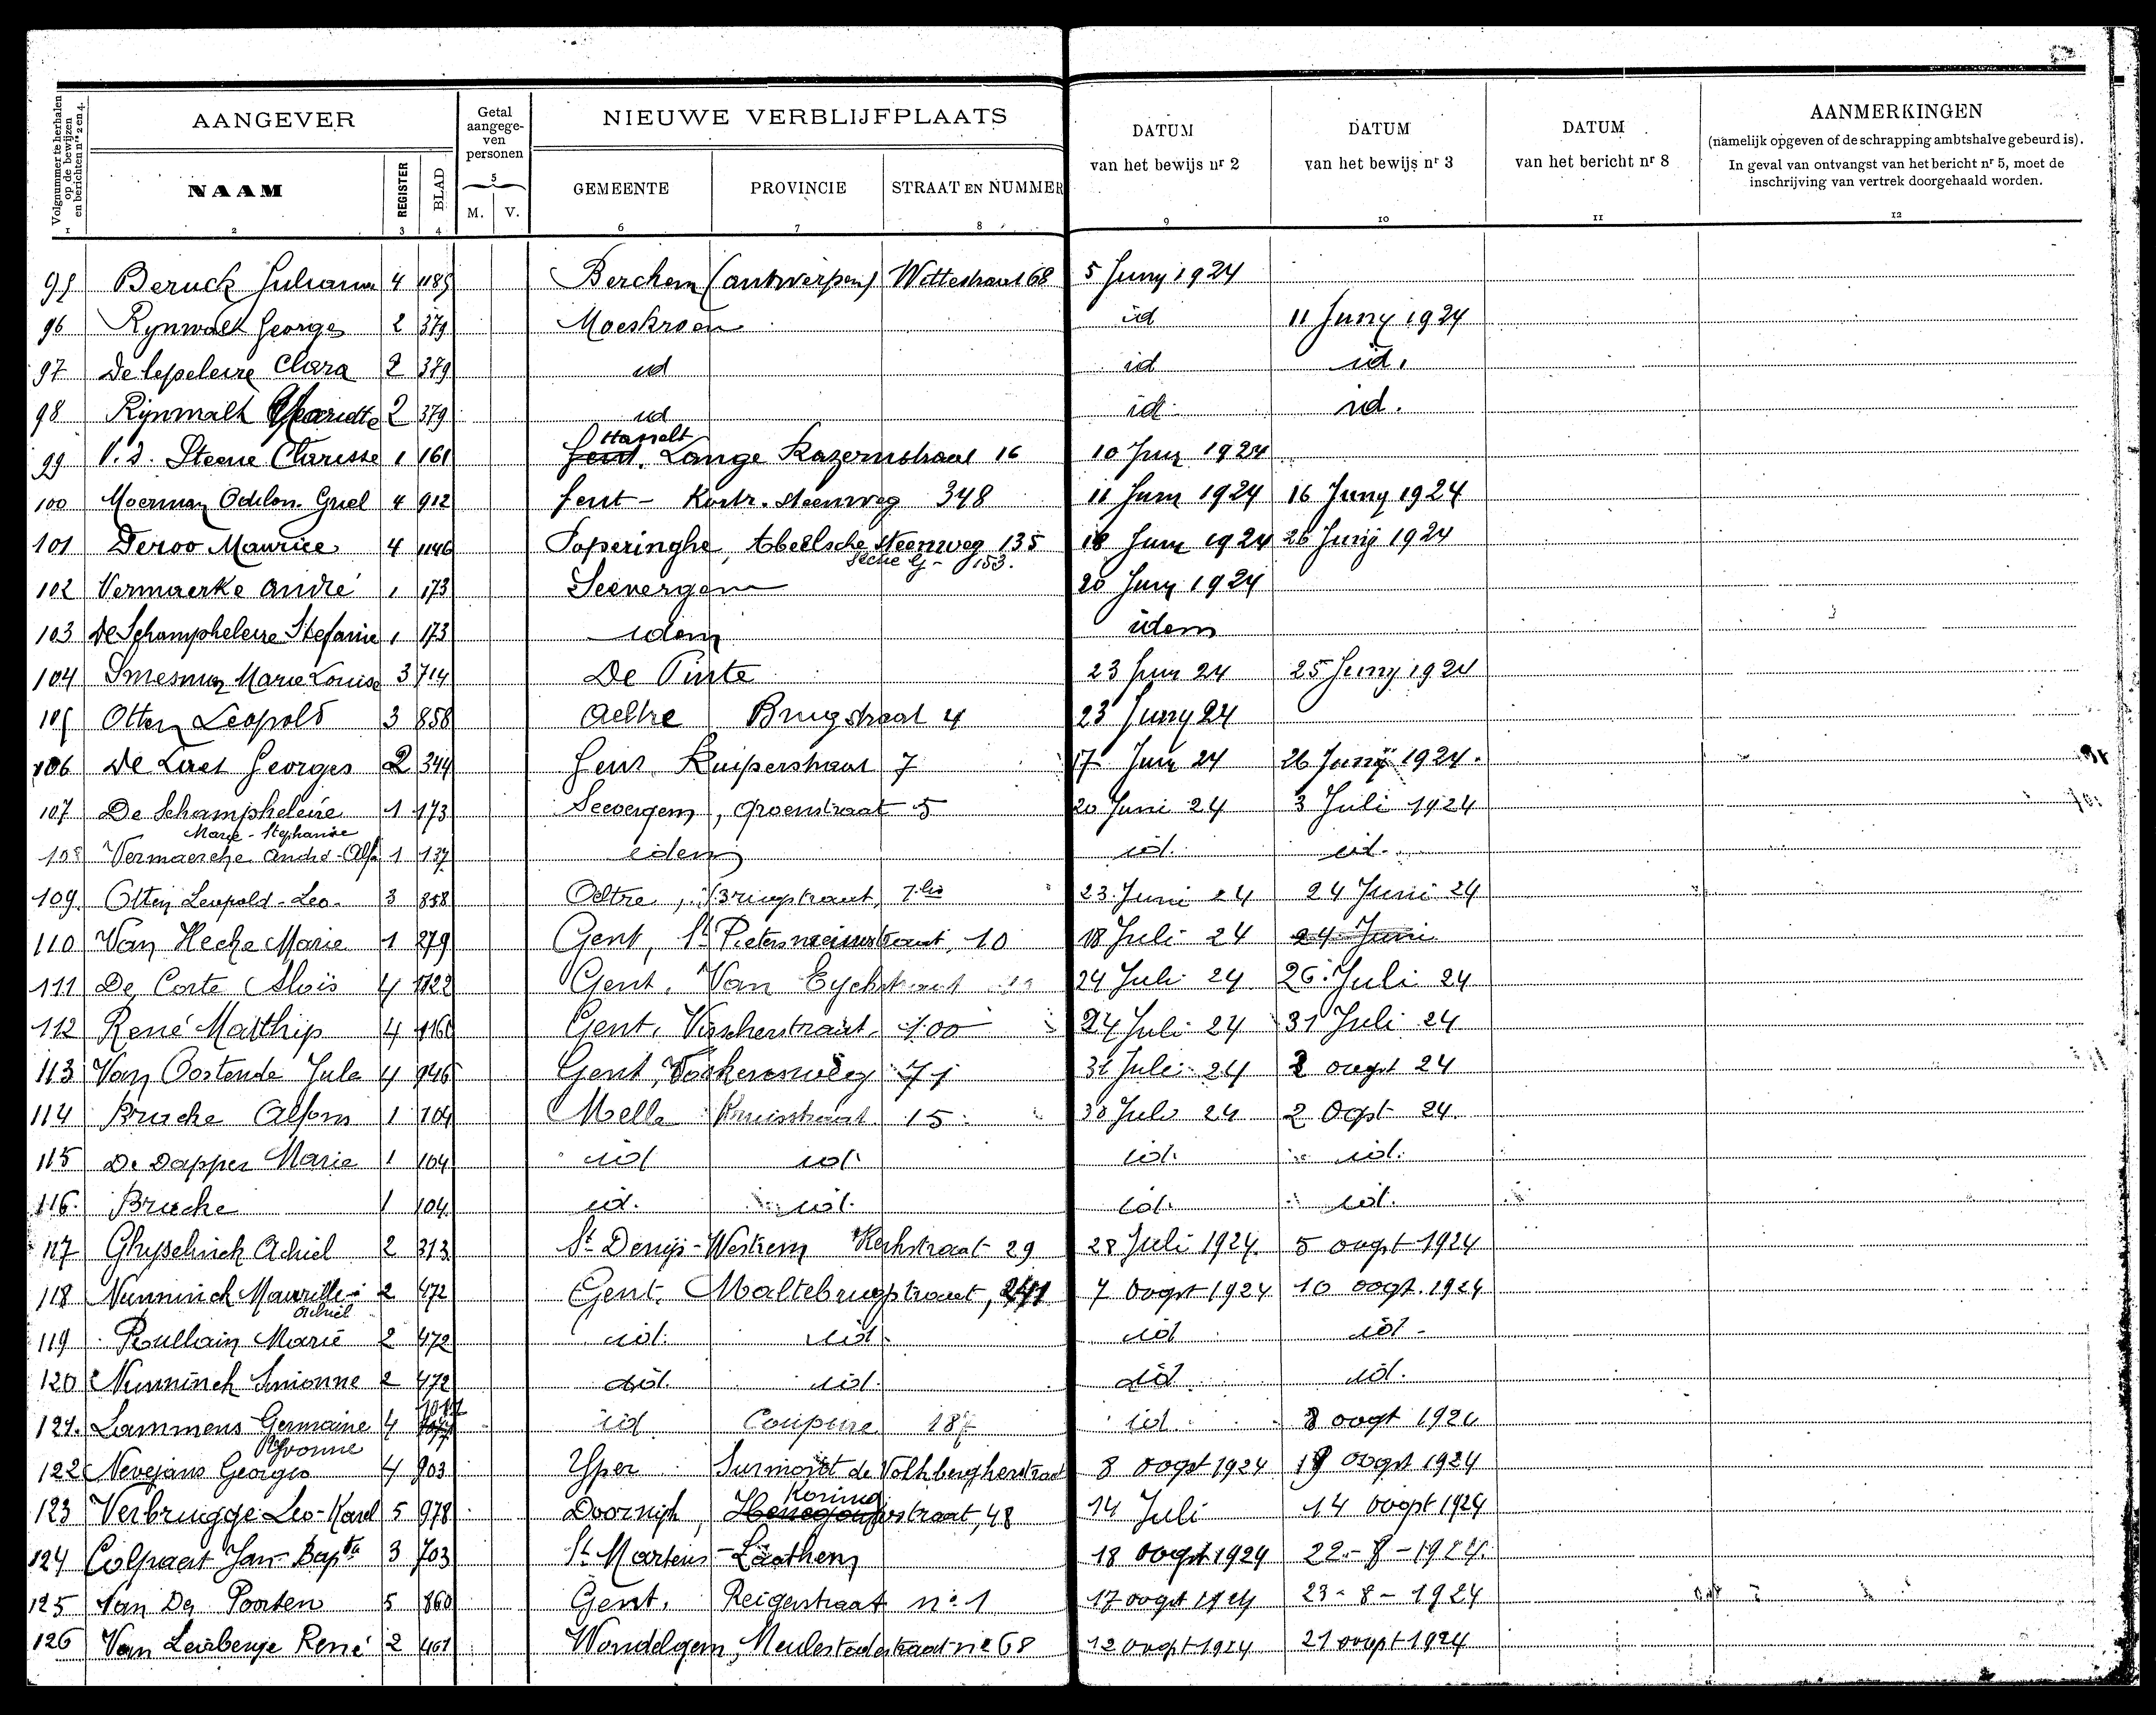 Volgnummer te herhalen op de bewijzen en berichten nrs 2 en 4.
AANGEVER
Getal aangegeven personen
NIEUWE VERBLIJFPLAATS
DATUM van het bewijs nr 2
DATUM van het bewijs nr 3
DATUM van het bericht nr 8
AANMERKINGEN
(namelijk opgeven of de schrapping ambtshalve gebeurd is).
In geval van ontvangst van het bericht nr 5, moet de inschrijving van vertrek doorgehaald worden.
NAAM REGISTER BLAD 5 M. V. GEMEENTE PROVINCIE STRAAT EN NUMMER
1 2 3 4 6 7 8 9 10 11 12
95 Beruck Juliana 4 1185 Berchem (antwerpen) Wettestraat 68 5 Juny 1924
96 Rynwalt Georges 2 379 Moeskroen id 11 Juny 1924
97 De lepeleire Clara 2 379 id id id.
98 Rijnwalt 2 379 id id id.
99 V. d. Steene Clarisse 1 161 Gent Hasselt. Lange Kazernstraat 16 10 Juny 1924
100 Moerman Odilon. Griel 4 912 Gent - Kortr. steenweg 348 11 Juni 1924 16 Juny 1924
101 Deroo Maurice 4 1146 Poperinghe, Abeelsche steenweg 135 18 Juny 1924 26 Junij 1924
Sectie G - 153.
102 Vermaerke André 1 173 Seevergem 20 Juny 1924
103 De Schampheleire Stefanie 1 173 idem idem
104 Smesman Marie Louise 3 714 De Pinte 23 Juny 24 25 Juny 1924
105 Otten Leopold 3 858 Aeltre Brugstraat 4 23 Juny 24
106 De Laet Georges 2 344 Gent. Kuiperstraat 7 17 Juny 24 26 Junij 1924.
107 De Schampheleire 1 173 Seevergem, Groenstraat 5 20 Juni 24 3 Juli 1924
Marie-Stephanie
108 Vermaercke André-Alf. 1 137 idem id. id.
109. Otten Leopold-Leo- 3 858 Aeltre, Brugstraat, 23 Juni 24 24 Juni 24
110 Van Hecke Marie 1 279 Gent, St Pietersnieuwstraat, 10 18 Juli 24 24 Juni
111 De Corte Aloïs 4 1122 Gent. Van Eyckstraat 24 Juli 24 26 Juli 24
112 René Matthijs 4 1160 Gent. Visscherstraat. 100 24 Juli 24 31 Juli 24
113 Van Oostende Jula 4 946 Gent, Voskensweg 71 31 Juli 24 2 oogst 24
114 Bracke Alfons 1 104 Melle Kruisstraat 15 30 Juli 24 2 Oogst 24.
115 De Dapper Marie 1 104 id id. id. id.
116. Bracke 1 104 id. id. id. id.
117 Ghyselinck Achiel 2 313 St Denijs-Westrem Kerkstraat 29 28 Juli 1924. 5 oogst 1924
118 Nunninck Maurille- 2 472 Gent. Maltebrugstraat, 241 7 Oogst 1924 10 oogst. 1924
Achiel
119 Roullain Marie 2 472 id. id. id id.
120 Nunninck Simonne 2 472 id id. id id.
121. Lammens Germaine 4 1017 id Coupure 187 id. 8 oogst 1924
Yvonne
122 Nevejans Georges 4 903 Yper Surmont de Volsbergherstraat 8 oogst 1924 19 oogst 1924
123 Verbrugge Leo-Karel 5 978 Doornijk, Koning straat, 48 14 Juli 14 oogst 1924
124 Colpaert Jan-Bapta 3 703 St Martens-Laathem 18 oogst 1924 22-8-1924.
125 Van De Poorten 5 860 Gent. Reigerstraat no 1 17 oogst 1924 23-8-1924
126 Van Leirberge René 2 461 Wondelgem, Meulestedestraat no 68 12 oogst 1924 21 oogst 1924